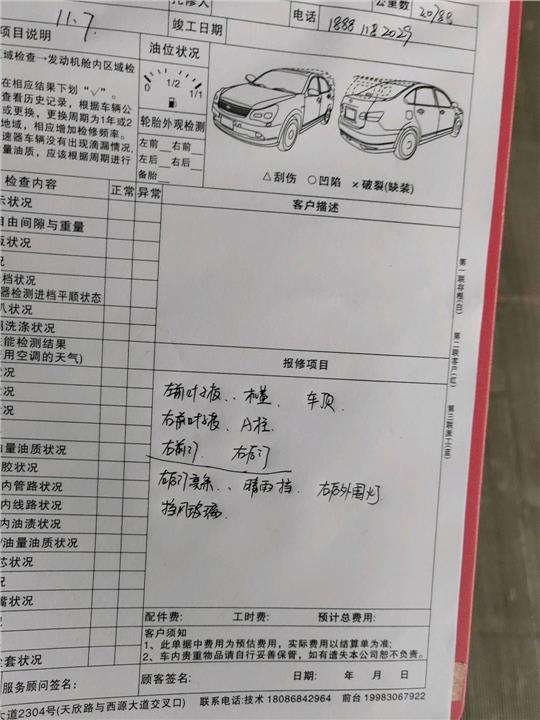 托修人
公里数
20788
11.7.
竣工日期
电话
1888 118 2029
项目说明
区域检查→发动机舱内区域检
在相应结果下划“√”。
查看历史记录，根据车辆公
或更换，更换周期为1年或2
地域，相应增加检修频率。
速器车辆没有出现滴漏情况，
量油质，应该根据周期进行
油位状况
0 1/2 1/1
轮胎外观检测
左前 右前
左后 右后
备胎
△刮伤 ○凹陷 ×破裂(缺装)
检查内容 正常 异常
客户描述
示状况
自由间隙与重量
板状况
况
进档状况
器检测进档平顺状态
八状况
洗涤状况
性能检测结果
用空调的天气)
状况
状况
状况
状况
油量油质状况
胶状况
内管路状况
内线路状况
内油渍状况
油量油质状况
芯状况
况
嘴状况
全套状况
第一联存根(白)
第二联客户(红)
第三联派工(蓝)
报修项目
左前叶子板、机盖、车顶、
右前叶子板、A柱、
右前门、右后门
右后门亮条、晴雨挡、右后外围灯
挡风玻璃、
配件费: 工时费: 预计总费用:
客户须知
1、此单据中费用为预估费用，实际费用以结算单为准;
2、车内贵重物品请自行妥善保管，如有遗失本公司恕不负责。
服务顾问签名: 顾客签名: 日期: 年 月 日
大道2304号(天欣路与西源大道交叉口) 联系电话:技术 18086842964 前台 19983067922